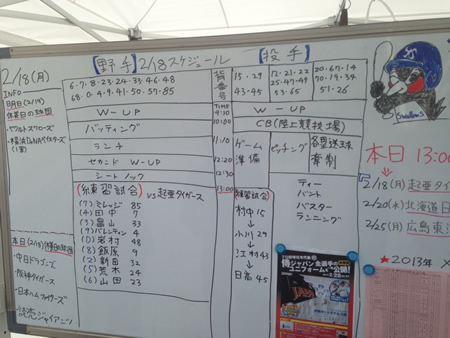 2/18(月)
INFO
明日(2/19)
休業日の球団
・ヤクルトスワローズ
・横浜DeNAベイスターズ
本日(2/18)休業日の球団
・中日ドラゴンズ
・阪神タイガース
・日本ハムファイターズ
・読売ジャイアンツ
【野手】2/18スケジュール【投手】
6・7・8・23・24・33・46・48
68・0・4・9・41・50・57・85
背番号
13・29
43・45
12・21・22
25・47・49
53・65
20・67・14
70・19・34
51・26
W-UP
TIME
9:10
W-UP
バッティング
10:00
CB(陸上競技場)
ランチ
11:10
ゲーム
準備
ピッチング
各塁送球
牽制
セカンド W-UP
12:20
シートノック
12:30
13:00
(練習試合) vs 起亜タイガース
(7) ミレッジ 85
(4) 田中 7
(3) 畠山 33
(9) バレンティン 4
(D) 岩村 48
(8) 飯原 9
(2) 新田 32
(5) 荒木 24
(6) 山田 23
(練習試合)
村中 15
小川 29
江村 43
日高 45
ティー
バント
バスター
ランニング
Swallows
本日 13:00
2/18(月) 起亜タイ
2/20(水) 北海道日
2/25(月) 広島東洋
★2013年
侍ジャパン
全選手の
ユニフォームを
公開!